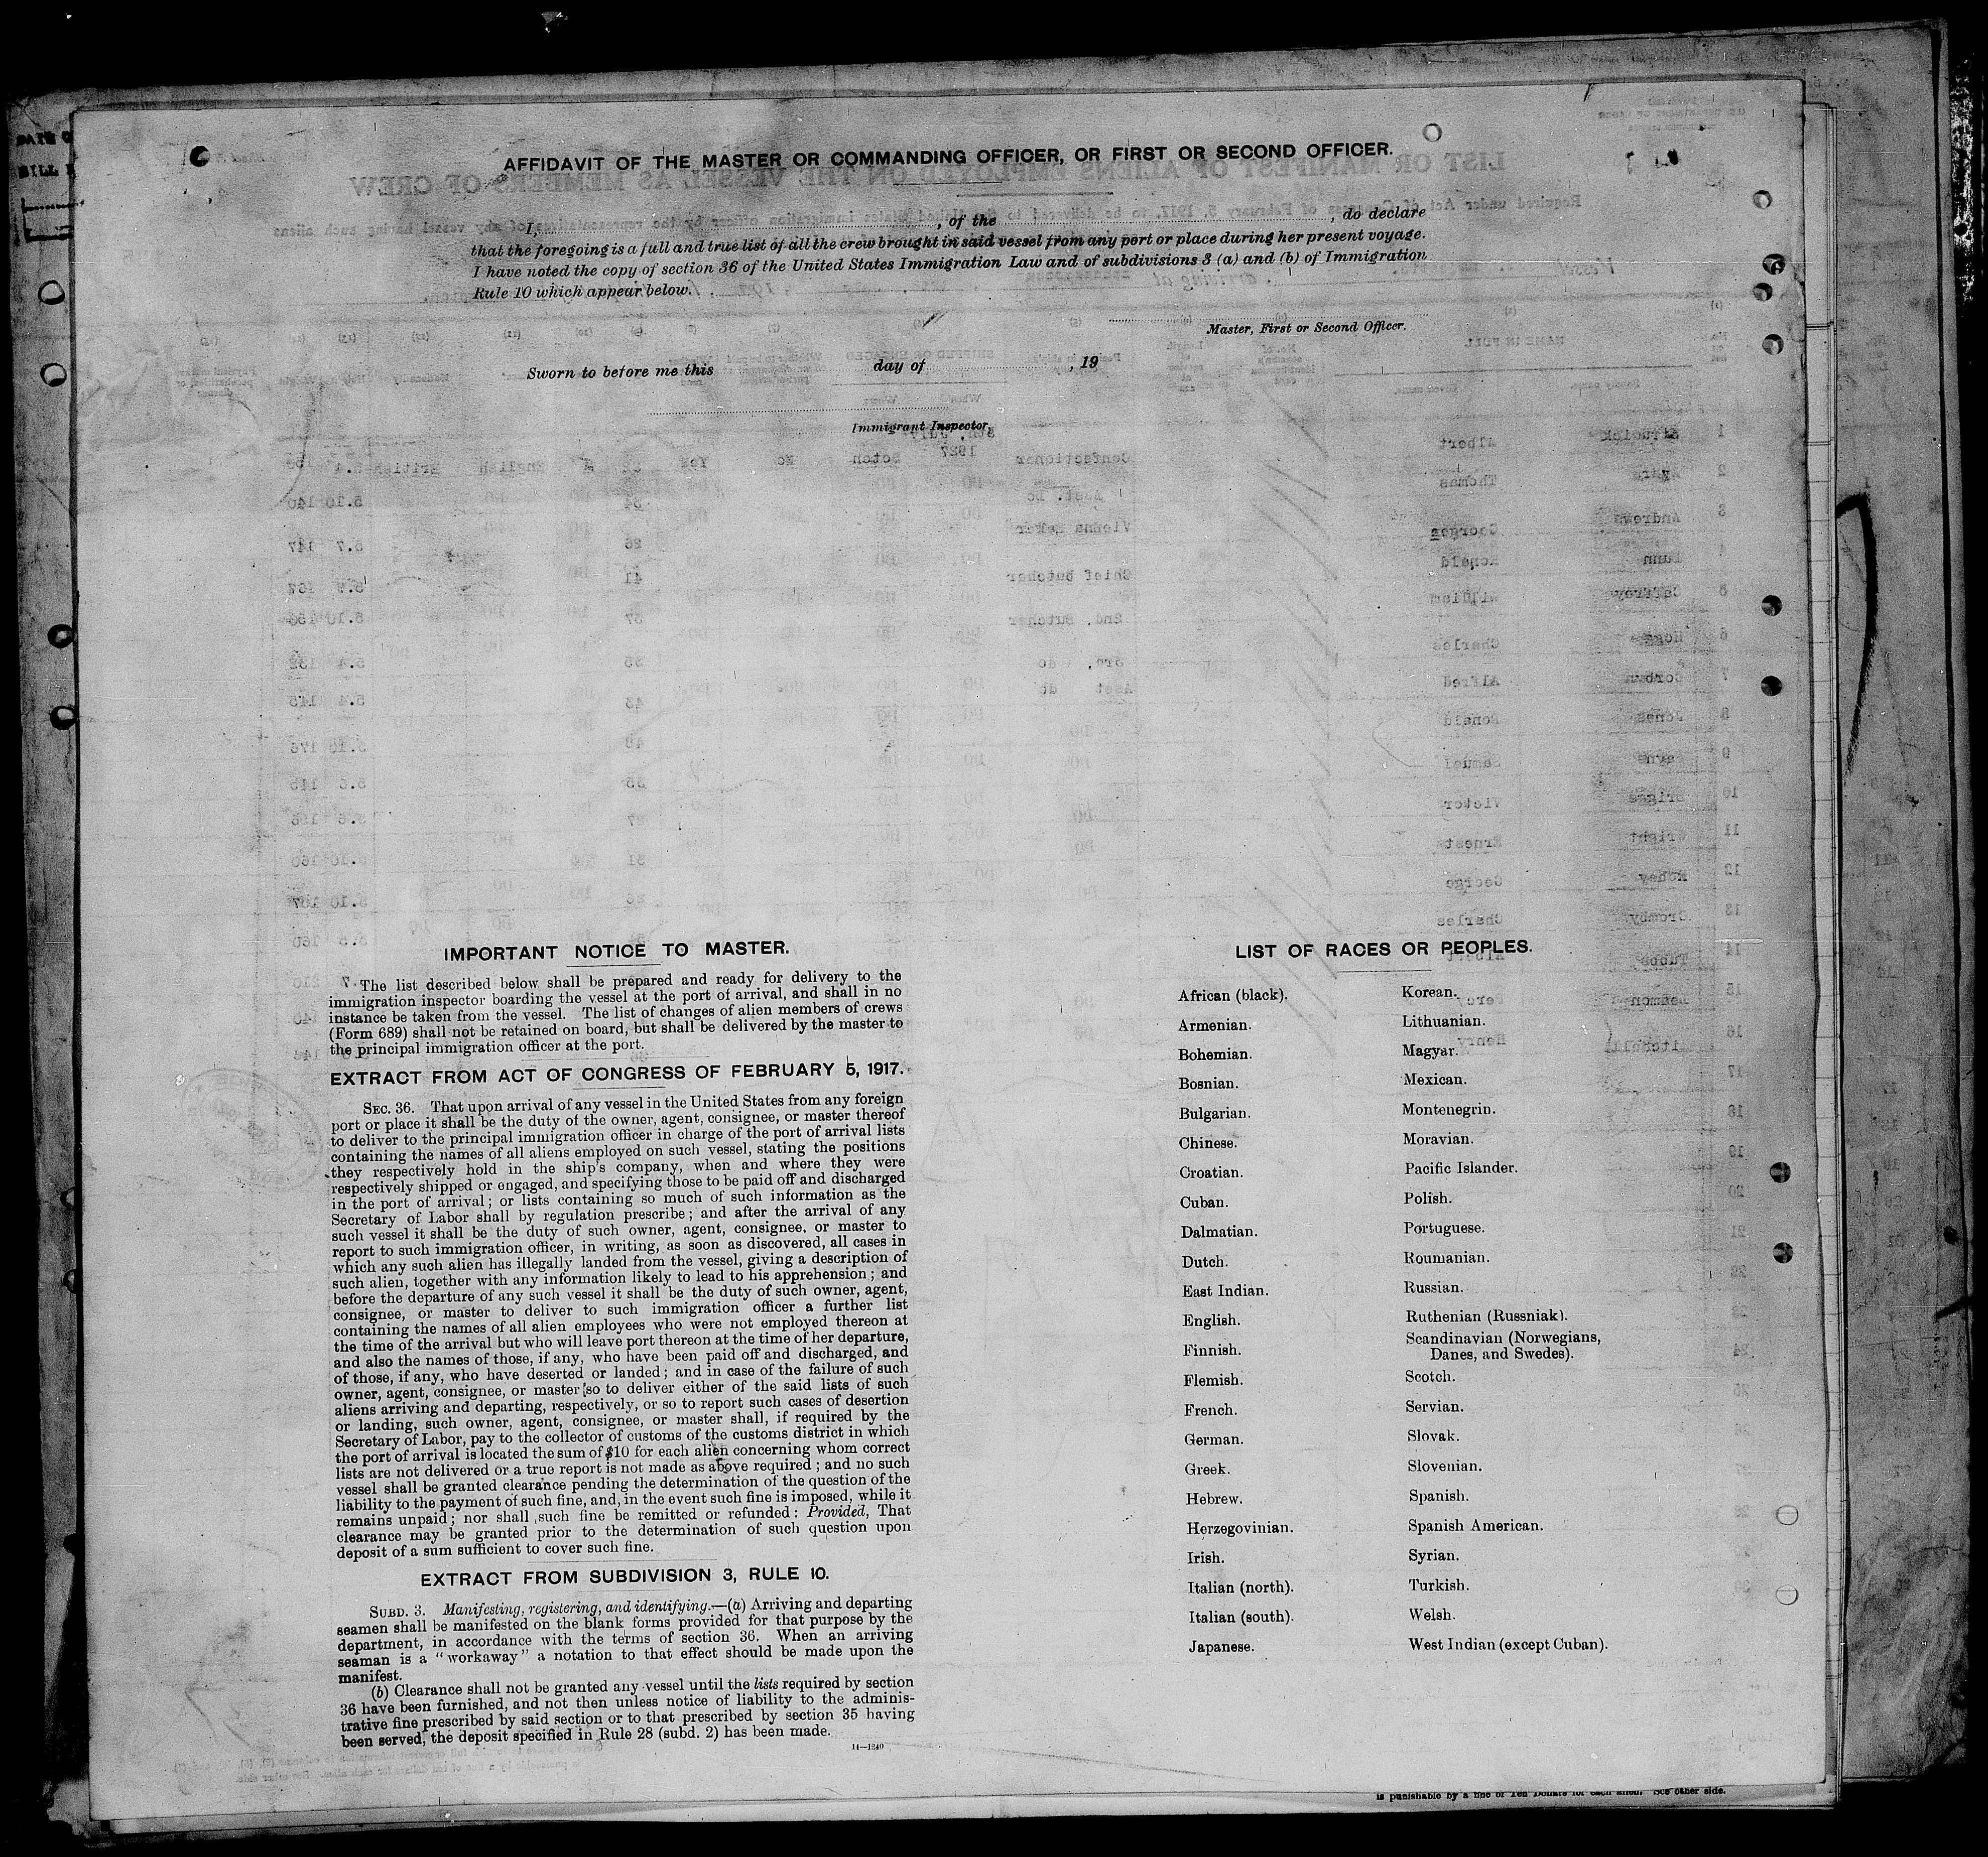 AFFIDAVIT OF THE MASTER OR COMMANDING OFFICER, OR FIRST OR SECOND OFFICER.
I, , of the , do declare
that the foregoing is a full and true list of all the crew brought in said vessel from any port or place during her present voyage.
I have noted the copy of section 36 of the United States Immigration Law and of subdivisions 3 (a) and (b) of Immigration
Rule 10 which appear below.
Master, First or Second Officer.
Sworn to before me this day of , 19
Immigrant Inspector.
IMPORTANT NOTICE TO MASTER.
The list described below shall be prepared and ready for delivery to the
immigration inspector boarding the vessel at the port of arrival, and shall in no
instance be taken from the vessel. The list of changes of alien members of crews
(Form 689) shall not be retained on board, but shall be delivered by the master to
the principal immigration officer at the port.
EXTRACT FROM ACT OF CONGRESS OF FEBRUARY 5, 1917.
SEC. 36. That upon arrival of any vessel in the United States from any foreign
port or place it shall be the duty of the owner, agent, consignee, or master thereof
to deliver to the principal immigration officer in charge of the port of arrival lists
containing the names of all aliens employed on such vessel, stating the positions
they respectively hold in the ship's company, when and where they were
respectively shipped or engaged, and specifying those to be paid off and discharged
in the port of arrival; or lists containing so much of such information as the
Secretary of Labor shall by regulation prescribe; and after the arrival of any
such vessel it shall be the duty of such owner, agent, consignee, or master to
report to such immigration officer, in writing, as soon as discovered, all cases in
which any such alien has illegally landed from the vessel, giving a description of
such alien, together with any information likely to lead to his apprehension; and
before the departure of any such vessel it shall be the duty of such owner, agent,
consignee, or master to deliver to such immigration officer a further list
containing the names of all alien employees who were not employed thereon at
the time of the arrival but who will leave port thereon at the time of her departure,
and also the names of those, if any, who have been paid off and discharged, and
of those, if any, who have deserted or landed; and in case of the failure of such
owner, agent, consignee, or master so to deliver either of the said lists of such
aliens arriving and departing, respectively, or so to report such cases of desertion
or landing, such owner, agent, consignee, or master shall, if required by the
Secretary of Labor, pay to the collector of customs of the customs district in which
the port of arrival is located the sum of $10 for each alien concerning whom correct
lists are not delivered or a true report is not made as above required; and no such
vessel shall be granted clearance pending the determination of the question of the
liability to the payment of such fine, and, in the event such fine is imposed, while it
remains unpaid; nor shall such fine be remitted or refunded: Provided, That
clearance may be granted prior to the determination of such question upon
deposit of a sum sufficient to cover such fine.
EXTRACT FROM SUBDIVISION 3, RULE 10.
SUBD. 3. Manifesting, registering, and identifying.—(a) Arriving and departing
seamen shall be manifested on the blank forms provided for that purpose by the
department, in accordance with the terms of section 36. When an arriving
seaman is a "workaway" a notation to that effect should be made upon the
manifest.
(b) Clearance shall not be granted any vessel until the lists required by section
36 have been furnished, and not then unless notice of liability to the adminis-
trative fine prescribed by said section or to that prescribed by section 35 having
been served, the deposit specified in Rule 28 (subd. 2) has been made.
14—1240
LIST OF RACES OR PEOPLES.
African (black).
Armenian.
Bohemian.
Bosnian.
Bulgarian.
Chinese.
Croatian.
Cuban.
Dalmatian.
Dutch.
East Indian.
English.
Finnish.
Flemish.
French.
German.
Greek.
Hebrew.
Herzegovinian.
Irish.
Italian (north).
Italian (south).
Japanese.
Korean.
Lithuanian.
Magyar.
Mexican.
Montenegrin.
Moravian.
Pacific Islander.
Polish.
Portuguese.
Roumanian.
Russian.
Ruthenian (Russniak).
Scandinavian (Norwegians,
Danes, and Swedes).
Scotch.
Servian.
Slovak.
Slovenian.
Spanish.
Spanish American.
Syrian.
Turkish.
Welsh.
West Indian (except Cuban).
is punishable by a fine of Ten Dollars for each alien. See other side.